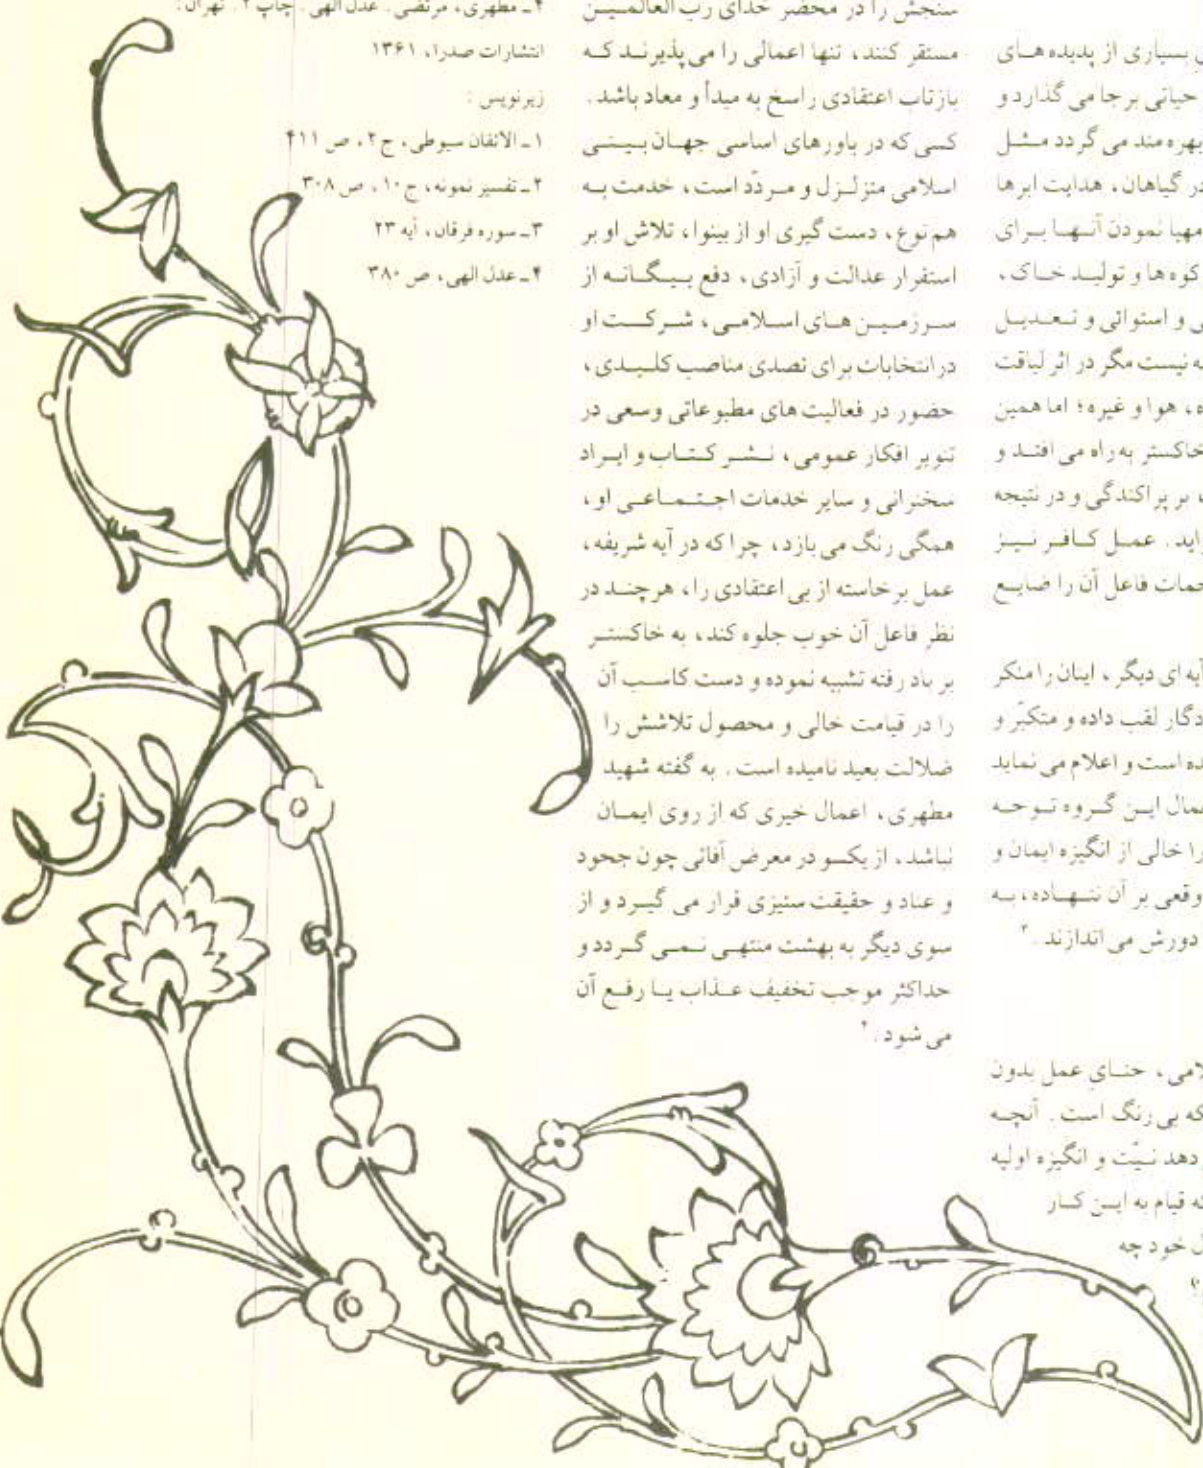 بسیاری از پدیده های
حیاتی برجا می گذارد و
بهره مند می گردد مثل
در گیاهان، هدایت ابرها
مهیا نمودن آنها برای
کوه ها و تولید خاک،
و استوائی و تعدیل
نیست مگر در اثر لیاقت
هوا و غیره؛ اما همین
خاکستر به راه می افتد و
بر پراکندگی و در نتیجه
عمل کافر نیز
فاعل آن را ضایع
آیه ای دیگر، اینان را منکر
لقب داده و متکبّر و
است و اعلام می نماید
این گروه توجه
را خالی از انگیزه ایمان و
وقعی بر آن ننهاده، به
دورش می اندازند.۳
حنای عمل بدون
که بی رنگ است. آنچه
دهد نیّت و انگیزه اولیه
قیام به این کار
خود چه
؟
سنجش را در محضر خدای رب العالمین
مستقر کنند، تنها اعمالی را می پذیرند که
بازتاب اعتقادی راسخ به مبدأ و معاد باشد.
کسی که در باورهای اساسی جهان بینی
اسلامی متزلزل و مردّد است، خدمت به
هم نوع، دست گیری او از بینوا، تلاش او بر
استقرار عدالت و آزادی، دفع بیگانه از
سرزمین های اسلامی، شرکت او
در انتخابات برای تصدی مناصب کلیدی،
حضور در فعالیت های مطبوعاتی وسعی در
تنویر افکار عمومی، نشر کتاب و ایراد
سخنرانی و سایر خدمات اجتماعی او،
همگی رنگ می بازد، چرا که در آیه شریفه،
عمل برخاسته از بی اعتقادی را، هرچند در
نظر فاعل آن خوب جلوه کند، به خاکستر
بر باد رفته تشبیه نموده و دست کاسب آن
را در قیامت خالی و محصول تلاشش را
ضلالت بعید نامیده است. به گفته شهید
مطهری، اعمال خیری که از روی ایمان
نباشد، از یکسو در معرض آفاتی چون جحود
و عناد و حقیقت ستیزی قرار می گیرد و از
سوی دیگر به بهشت منتهی نمی گردد و
حداکثر موجب تخفیف عذاب یا رفع آن
می شود.۴
۴ـ مطهری، مرتضی. عدل الهی. چاپ ۲. تهران:
انتشارات صدرا، ۱۳۶۱
زیرنویس:
۱ـ الاتقان سیوطی، ج ۲، ص ۴۱۱
۲ـ تفسیر نمونه، ج ۱۰، ص ۳۰۸
۳ـ سوره فرقان، آیه ۲۳
۴ـ عدل الهی، ص ۳۸۰